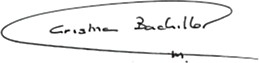 Cristina Bachiller
M.